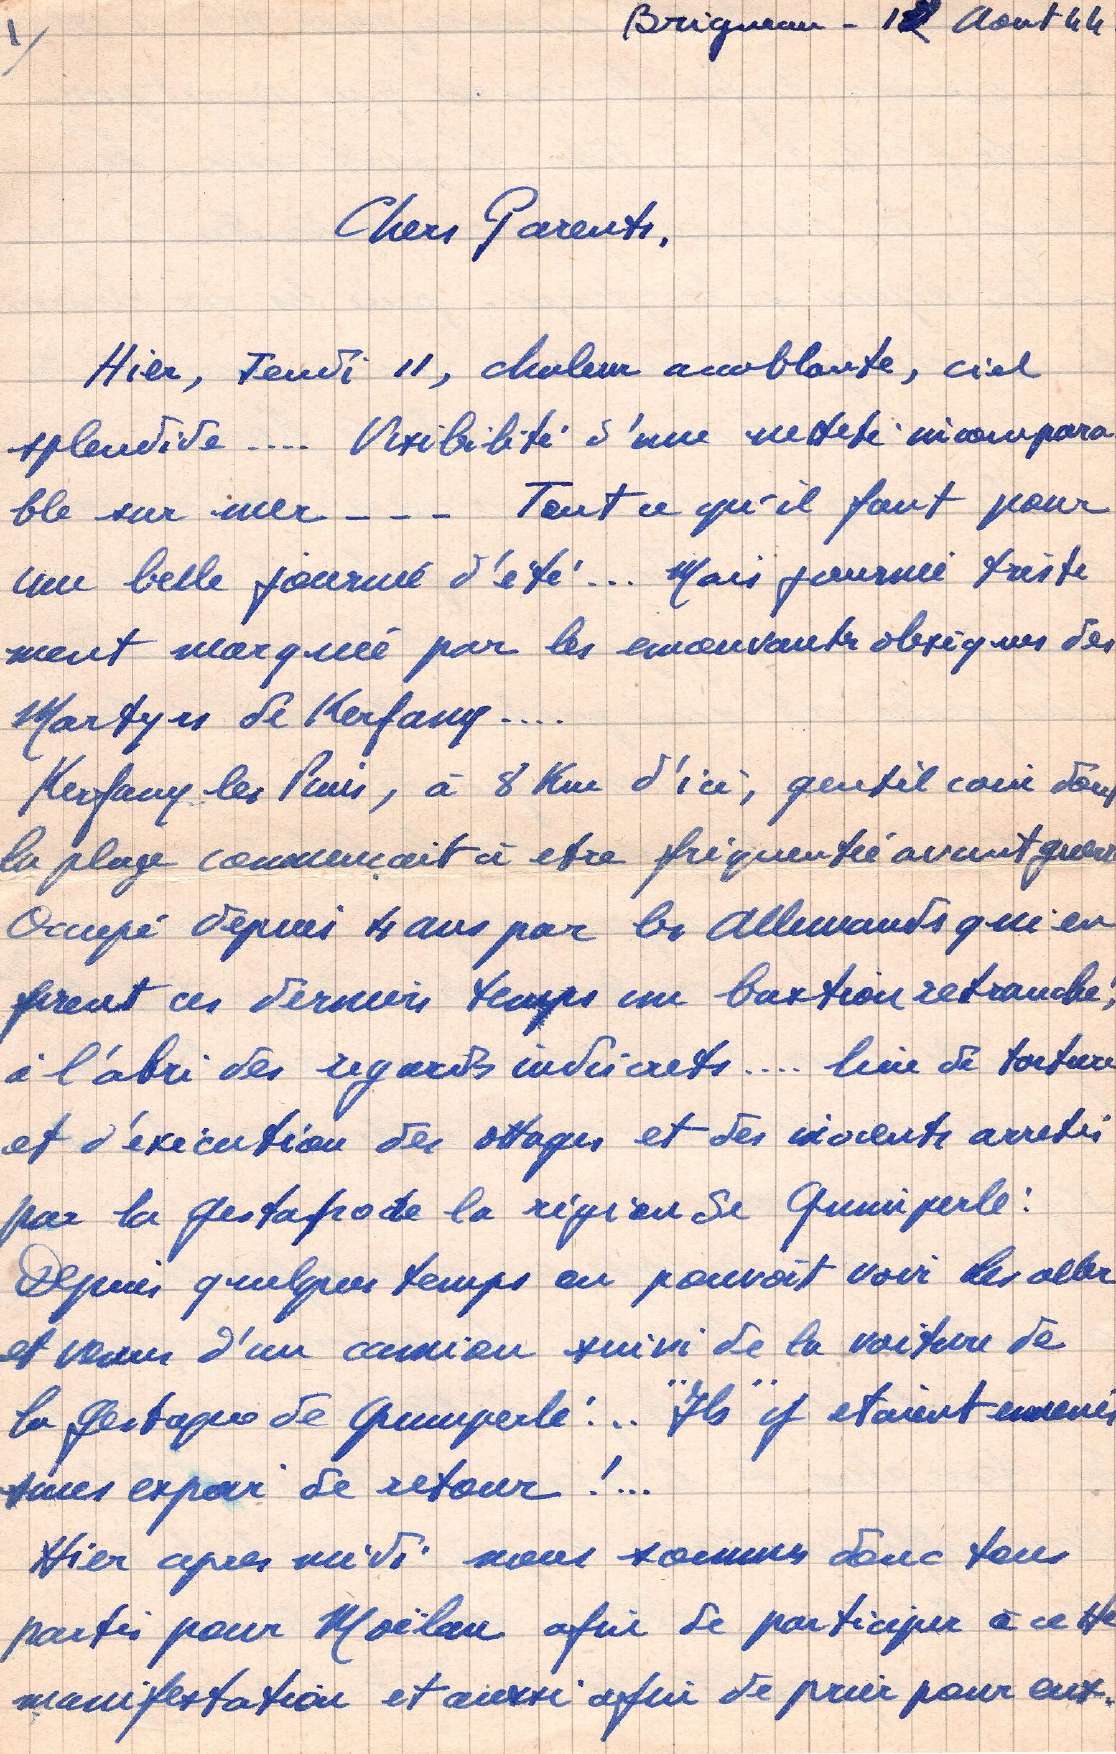 1/
Brigneau - 12 Aout 44.
Chers Parents,
Hier, Jeudi 11, chaleur accablante, ciel
splendide .... Visibilité d'une netteté incompara
ble sur mer - - - Tout ce qu'il faut pour
une belle journée d'été ... Mais journée triste
ment marquée par les emouvants obsèques des
Martyrs de Kerfany ....
Kerfany les Pins, à 8 Km d'ici, gentil coin dont
la plage commençait à etre fréquentée avant guerre
Occupé depuis 4 ans par les Allemands qui en
firent ces derniers temps un bastion retranché,
à l'abri des regards indiscrets .... lieu de torture
et d'exécution des ottages et des inocents arretés
par la Gestapo de la région de Quimperlé :
Depuis quelques temps on pouvait voir les aller
et venus d'un camion suivi de la voiture de
la Gestapo de Quimperlé ... "Ils" y etaient emmenés
sans espoir de retour ! ...
Hier apres midi nous sommes donc tous
partis pour Moëlan afin de participer à cette
manifestation et aussi afin de prier pour eux.